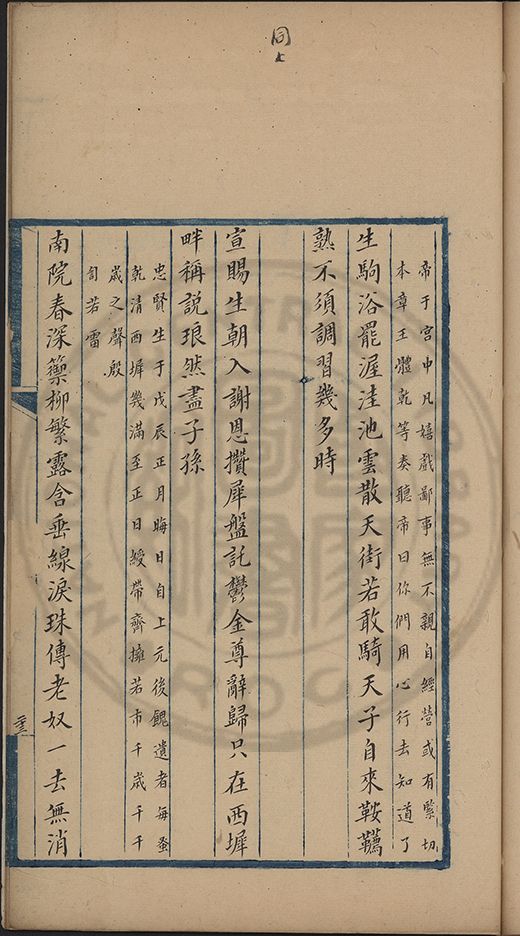 同上
帝于宮中凡嬉戲鄙事無不親自經營或有緊切
本章王體乾等奏聽帝曰你們用心行去知道了
生駒浴罷渥洼池雲散天街若敢騎天子自來鞍韉
熟不須調習幾多時
宣賜生朝入謝恩攢犀盤託鬱金尊辭歸只在西墀
畔稱說琅然盡子孫
忠賢生于戊辰正月晦日自上元後餽遺者每蚤
乾清西墀幾滿至正日綬帶齊擁若市千歲千千
歲之聲殷
訇若雷
南院春深籞柳繁露含垂線淚珠傳老奴一去無消